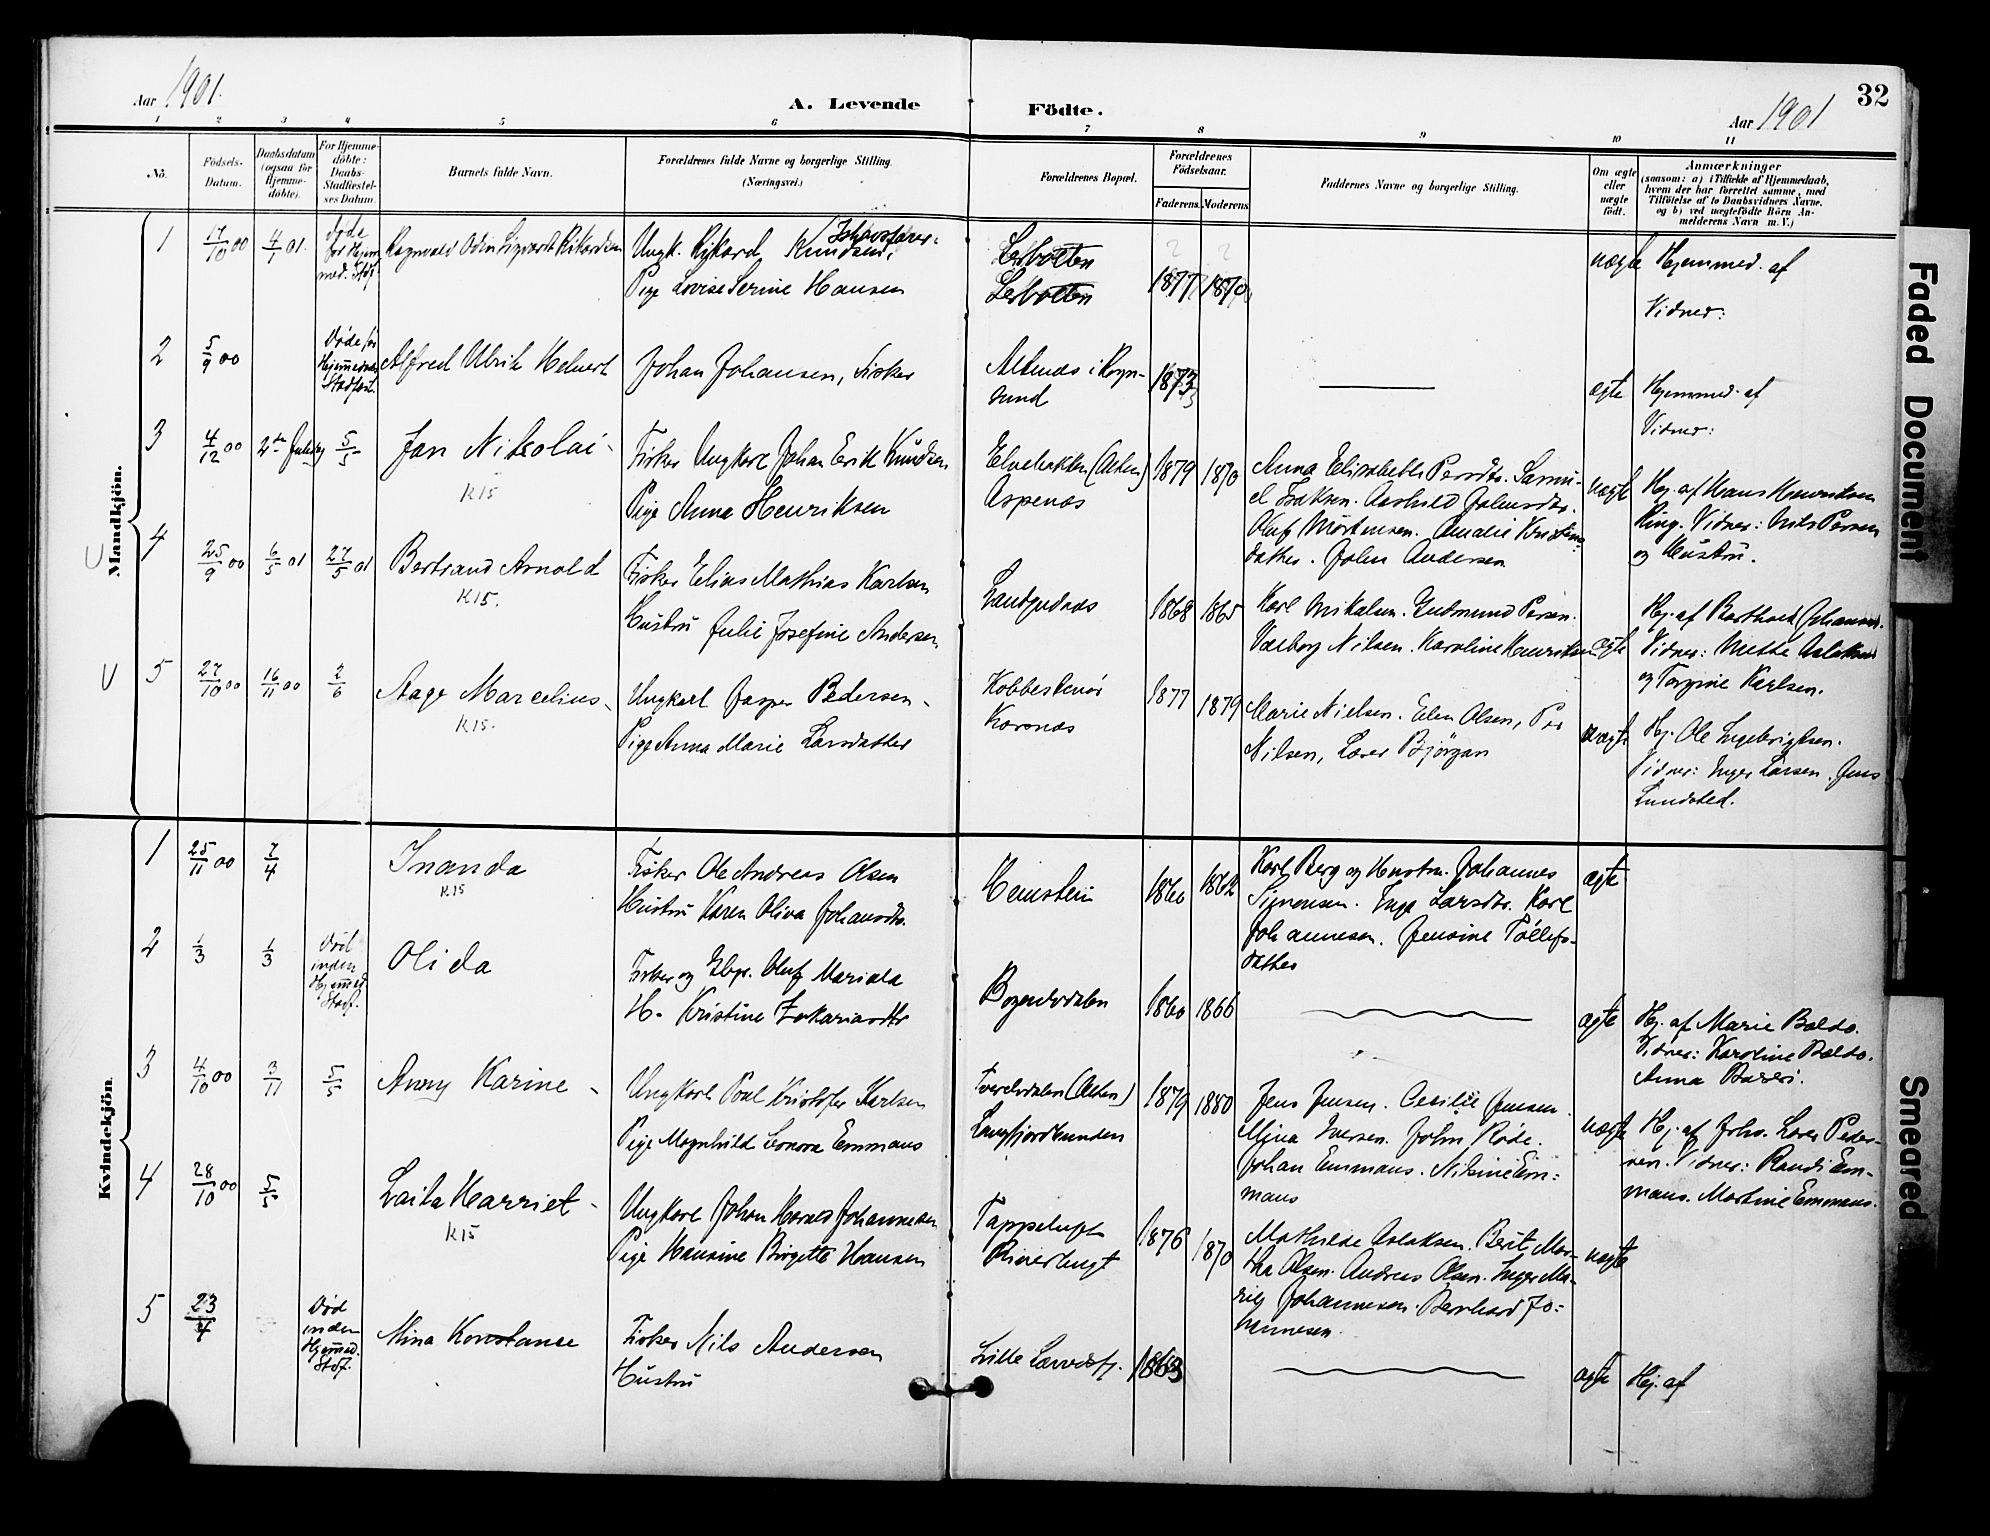 Aar 1901.
A. Levende Födte.
Aar 1901
32
1 2 3 4 5 6 7 8 9 10 11
No.
Födsels-Datum.
Daabsdatum (ogsaa for Hjemme-döbte).
For Hjemme-döbte: Daabs-Stadfæstel-ses Datum.
Barnets fulde Navn.
Forældrenes fulde Navne og borgerlige Stilling.
(Næringsvei.)
Forældrenes Bopæl.
Forældrenes Födselsaar.
Faderens. Moderens.
Faddernes Navne og borgerlige Stilling.
Om ægte eller uægte födt.
Anmærkninger
(saasom: a) i Tilfælde af Hjemmedaab,
hvem der har forrettet samme, med
Tilföielse af to Daabsvidners Navne.
og b) ved uægtefödte Börn An-
melderens Navn m. V.)
Mandkjön.
1 17/10 00 4/1 01. Døde før Hjemmed. Stdf. Ragnvald Odin Sigvart Rikardsen
Ungk. Rikard Knudsen,
Pige Lovise Serine Hansen
Lerbotten
Lerbotten
1877 1870
uægte Hjemmed. af
Vidner:
2 5/9 00 Døde før Hjemmedaab Stadfæst. Alfred Ulrik Helmert
Johan Johansen, Fisker
Altenes i Rogn-
sund
1873
ægte Hjemmed. af
Vidner:
3 4/12 00 2den Juledag 5/5 Jan Nikolai -
K15
Fisker Ungkarl Johan Erik Knudsen
Pige Anna Henriksen
Elvebakken (Alten)
Aspenæs
1879 1870
Anna Elisabeth Persdtr. Samu-
el Isaksen. Aashild Johnsdtr.
Oluf Mortensen. Amalie Kristine
datter. John Andersen
uægte Hj. af Hans Henriksen
Ring. Vidner: Nils Persen
og Hustru.
4 25/9 00 6/5 01 27/5 01 Bertrand Arnold
K15.
Fisker Elias Mathias Karlsen
Hustru Julie Josefine Andersen
1868 1865
Karl Mikalsen. Gudmund Persen.
Valborg Nilsen. Karoline Henriksen
ægte Hj. af Barthold Johansen.
Vidner: Mette Aslaksen
og Torgine Karlsen.
5 27/10 00 16/11 00 2/6 Aage Marcelius -
K15.
Ungkarl Jasper Pedersen -
Pige Anna Marie Larsdatter
Kobbeskenør
Korsnæs
1877 1879
Marie Nielsen. Elen Olsen, Per
Nilsen, Lærer Bjørgan
uægte Hj. Ole Ingebrigtsen.
Vidner: Inger Larsen. Jens
Lundsted.
Kvindekjön.
1 25/11 00 7/4 Inanda
K15
Fisker Ole Andreas Olsen
Hustru Karen Oliva Johansdtr.
1860 1862
Karl Berg og Hustru. Johannes
Simonsen. Inga Larsdtr. Karl
Johannesen. Jensine Tollefs-
datter
ægte
2 1/3 1/3 Død inden Hjemmed. Stadf. Olida
Fisker og Gbr. Oluf Mariala
H. Kristine Zakariasdtr
Bognelvdalen
1860 1866
ægte Hj. af Marie Baldo.
Vidner: Karoline Baldo.
Anna Bareri.
3 4/10 00 3/11 5/5 Anny Karine -
Ungkarl Poul Kristofer Karlsen
Pige Magnhild Lenora Emmaus
Tverelvdalen (Alten)
Langfjordbunden
1879 1880
Jens Jensen. Cecilie Jensen.
Mina Iversen. John Røde.
Johan Emmaus. Nikine Em-
maus
uægte Hj. af Joh. Lærer Peder-
sen. Vidner: Randi Em-
maus. Martine Emmaus.
4 28/10 00 5/5 Laila Harriet -
K15
Ungkarl Johan Harald Johannesen
Pige Hansine Birgitte Hansen
Tappeluft
Riverbugt
1876 1870
Mathilde Aslaksen. Berit Mar-
tha Olsen. Andreas Olsen. Inger Ma-
rie Johannesen. Bernhard Jo-
hannesen.
uægte
5 23/4 Død inden Hjemmed. Stadf. Mina Konstanse
Fisker Nils Andersen
Hustru
Lille Lerredsfj.
1863
ægte Hj. af
Faded Document
Smeared